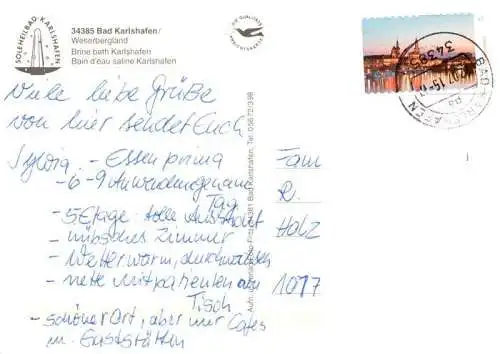 SOLEHEILBAD KARLSHAFEN
34385 Bad Karlshafen/
Weserbergland
Brine bath Karlshafen
Bain d'eau saline Karlshafen
Viele liebe Grüße
von hier sendet Euch
Sylvia. - Essen prima
- 6-9 Anwendungen am
Tag
- 5 Etage tolle Aussicht
- hübsches Zimmer
- Wetter warm, durchwachsen
- nette Mitpatienten am
Tisch
- schöner Ort, aber nur Cafes
u. Gaststätten
Fam
R.
Holz
1077
34385 Bad Karlshafen, Tel. 05672/398
34385
BAD KARLSHAFEN